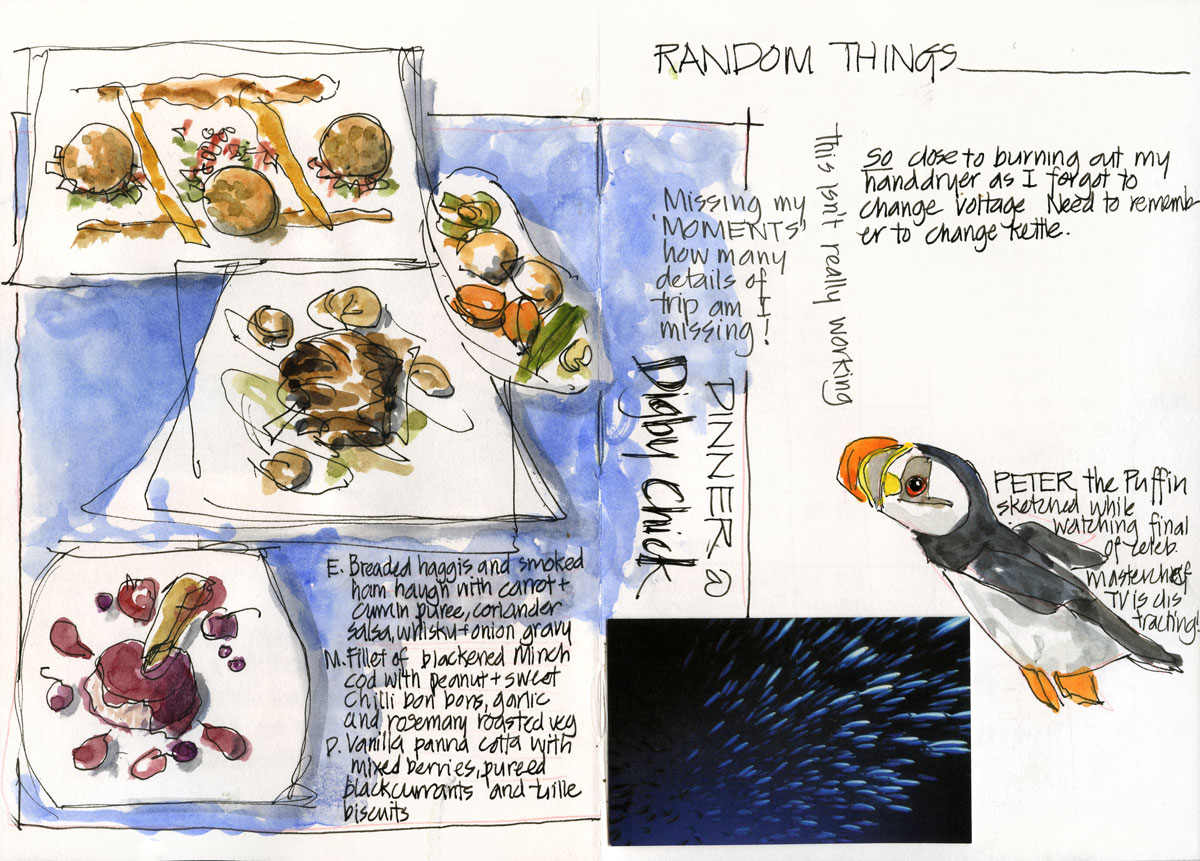 RANDOM THINGS
SO close to burning out my
handdryer as I forgot to
change voltage Need to rememb-
er to change kettle.
This isn't really working
Missing my
'MOMENTS'
how many
details of
trip am I
missing!
DINNER @
Digby Chick
E. Breaded haggis and smoked
ham haugh with carrot +
cumin puree, coriander
salsa, whisky + onion gravy
M. Fillet of blackened Minch
cod with peanut + sweet
chilli bon bons, garlic
and rosemary roasted veg
D. Vanilla panna cotta with
mixed berries, pureed
blackcurrants and tuille
biscuits
PETER the Puffin
sketched while
watching final
of celeb.
masterchef
TV is dis
tracting!